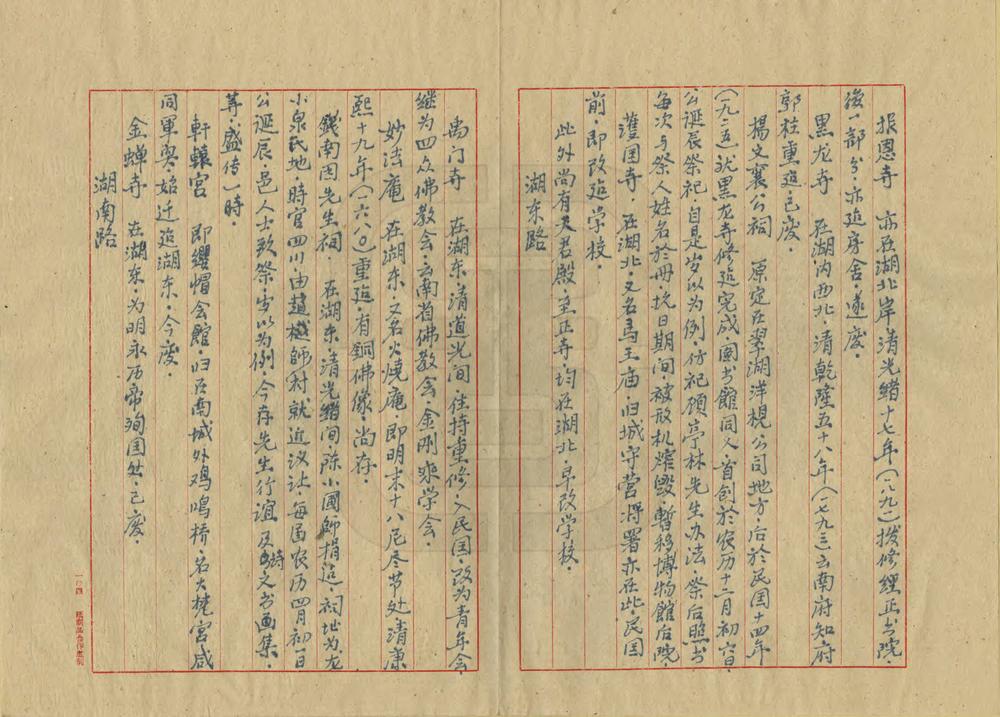 报恩寺　亦在湖北岸·清光绪十七年(一八九一)拨修经正书院·
后一部分·亦造房舍·遂废·
黑龙寺　在湖内西北·清乾隆五十八年(一七九三)云南府知府
郭柱重造·已废·
杨文襄公祠　原定在翠湖洋枧公司地方·后於民国十四年
(一九二五)就黑龙寺修造完成·圕书館同人·首创於农历十二月初六日·
公诞辰祭祀·自是岁以为例·仿祀顾亭林先生办法·祭后照书
每次与祭人姓名於册·抗日期间·被敌机炸毁·暫移博物館后院·
護国寺·在湖北·又名马王庙·归城守营·得署亦在此·民国
前·即改造学校·
此外尚有天君殿·至正寺·均在湖北·早改学校·
湖东路
禹门寺　在湖东·清道光间住持重修·入民国·改为青年会·
继为四众佛教会·云南省佛教会·金刚乘学会·
妙法庵　在湖东·又名火燒庵·即明末十八尼尽节处·清康
熙十九年(一六八〇)重造·有銅佛像·尚存·
錢南园先生祠·在湖东·清光緒间陈小圃師捐造·祠址为龙
小泉氏地·時官四川·由趙樾師村就近议让·每届农历四月初一日
公诞辰·邑人士致祭·岁以为例·今存先生行谊及诗文书画集·
等·盛传一時·
軒轅宫　即缨帽会館·归在南城外鸡鳴桥·名大梵宫·咸
同軍兴·始迁造湖东·今废·
金蝉寺　在湖东·为明永历帝殉国处·已废·
湖南路